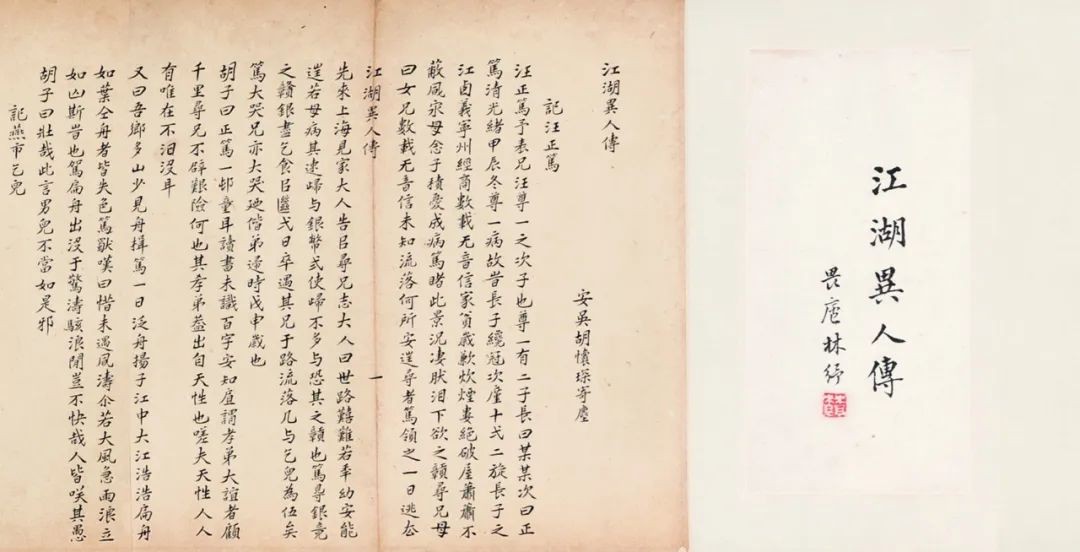 江湖異人傳
畏廬林紓
江湖異人傳
安吳胡懷琛寄塵
記汪正篤
汪正篤予表兄汪尊一之次子也尊一有二子長曰某某次曰正
篤清光緒甲辰冬尊一病故昔長子纔冠次廑十弍二旋長子之
江卤義寧州經商數載无音信家貧歲歉炊煙婁絕破屋蕭蕭不
蔽風母念子積愛成病篤睹此景況凄肰泪下欲之贛尋兄母
曰女兄數載无音信未知流落何所安尋者篤領之一日逃厺
江湖異人傳 一
先來上海見家大人告㠯尋兄志大人曰世路囏難若秊幼安能
若母病其逮歸与銀幣弍使歸不多与恐其之贛也篤㝵銀竟
之贛銀盡乞食㠯弍日卒遇其兄于路流落几与乞兒為伍矣
篤大哭兄亦大哭偕弟歸時戊申歲也
胡子曰正篤一邨童耳讀書未識百字安知所謂孝弟大誼者顧
千里尋兄不辟艱險何也其孝弟蓋出自天性也嗟夫天性人人
有唯在不汨沒耳
又曰吾鄉多山少見舟楫篤一日泛舟揚子江中大江浩浩扁舟
如葉仝舟者皆失色篤獸嘆曰惜未遇風濤尒若大風急雨浪立
如山斯旹也駕扁舟出沒于驚濤駭浪閒豈不快哉人皆咲其愚
胡子曰壯哉此言男兒不當如是邪
記燕市乞兒